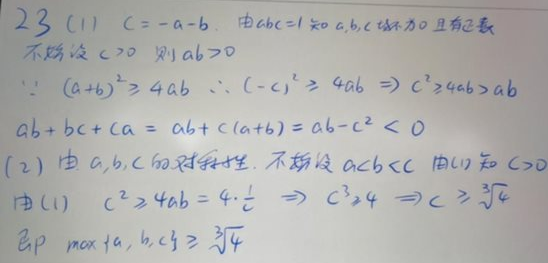 23 (1) c = -a-b. 由abc=1 知 a,b,c 均不为0 且有正数
不妨设 c>0 则 ab>0
∵ (a+b)² ≥ 4ab ∴ (-c)² ≥ 4ab ⇒ c² ≥ 4ab > ab
ab + bc + ca = ab + c(a+b) = ab - c² < 0
(2) 由 a,b,c 的对称性. 不妨设 a<b<c 由(1) 知 c>0
由(1) c² ≥ 4ab = 4·1/c ⇒ c³ ≥ 4 ⇒ c ≥ ∛4
即 max{a, b, c} ≥ ∛4